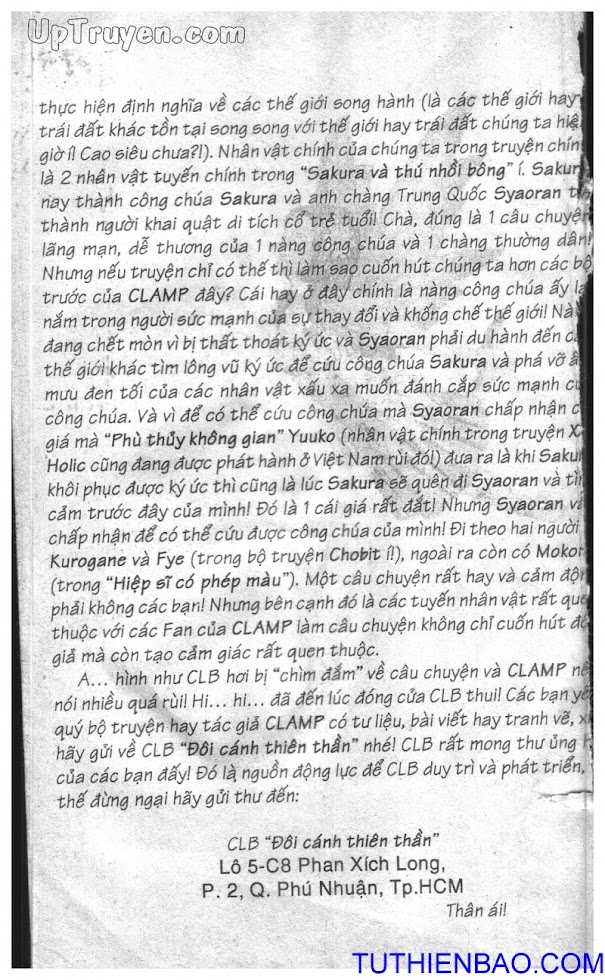 UpTruyen.com
thực hiện định nghĩa về các thế giới song hành (là các thế giới hay
trái đất khác tồn tại song song với thế giới hay trái đất chúng ta
giờ í! Cao siêu chưa?!). Nhân vật chính của chúng ta trong truyện
là 2 nhân vật tuyến chính trong “Sakura và thú nhồi bông” í.
nay thành công chúa Sakura và anh chàng Trung Quốc Syaoran
thành người khai quật di tích cổ trẻ tuổi! Chà, đúng là 1 câu chuyện
lãng mạn, dễ thương của 1 nàng công chúa và 1 chàng thường dân!
Nhưng nếu truyện chỉ có thế thì làm sao cuốn hút chúng ta hơn các bộ
trước của CLAMP đây? Cái hay ở đây chính là nàng công chúa ấy
nắm trong người sức mạnh của sự thay đổi và khống chế thế giới!
đang chết mòn vì bị thất thoát ký ức và Syaoran phải du hành đến
thế giới khác tìm lông vũ ký ức để cứu công chúa Sakura và phá vỡ
mưu đen tối của các nhân vật xấu xa muốn đánh cắp sức mạnh
công chúa. Và vì để có thể cứu công chúa mà Syaoran chấp nhận
giá mà “Phù thủy không gian” Yuuko (nhân vật chính trong truyện X
Holic cũng đang được phát hành ở Việt Nam rùi đó!) đưa ra là khi
khôi phục được ký ức thì cũng là lúc Sakura sẽ quên đi Syaoran và
cảm trước đây của mình! Đó là 1 cái giá rất đắt! Nhưng Syaoran
chấp nhận để có thể cứu được công chúa của mình! Đi theo hai người
Kurogane và Fye (trong bộ truyện Chobit í!), ngoài ra còn có
(trong “Hiệp sĩ có phép màu”). Một câu chuyện rất hay và cảm
phải không các bạn! Nhưng bên cạnh đó là các tuyến nhân vật rất
thuộc với các Fan của CLAMP làm câu chuyện không chỉ cuốn hút
giả mà còn tạo cảm giác rất quen thuộc.
A... hình như CLB hơi bị “chìm đắm” về câu chuyện và CLAMP
nói nhiều quá rùi! Hi... hi... đã đến lúc đóng cửa CLB thui! Các bạn
quý bộ truyện hay tác giả CLAMP có tư liệu, bài viết hay tranh vẽ,
hãy gửi về CLB “Đôi cánh thiên thần” nhé! CLB rất mong thư ủng
của các bạn đấy! Đó là nguồn động lực để CLB duy trì và phát triển,
thế đừng ngại hãy gửi thư đến:
CLB “Đôi cánh thiên thần”
Lô 5-C8 Phan Xích Long,
P. 2, Q. Phú Nhuận, Tp.HCM
Thân ái!
TUTHIENBAO.COM